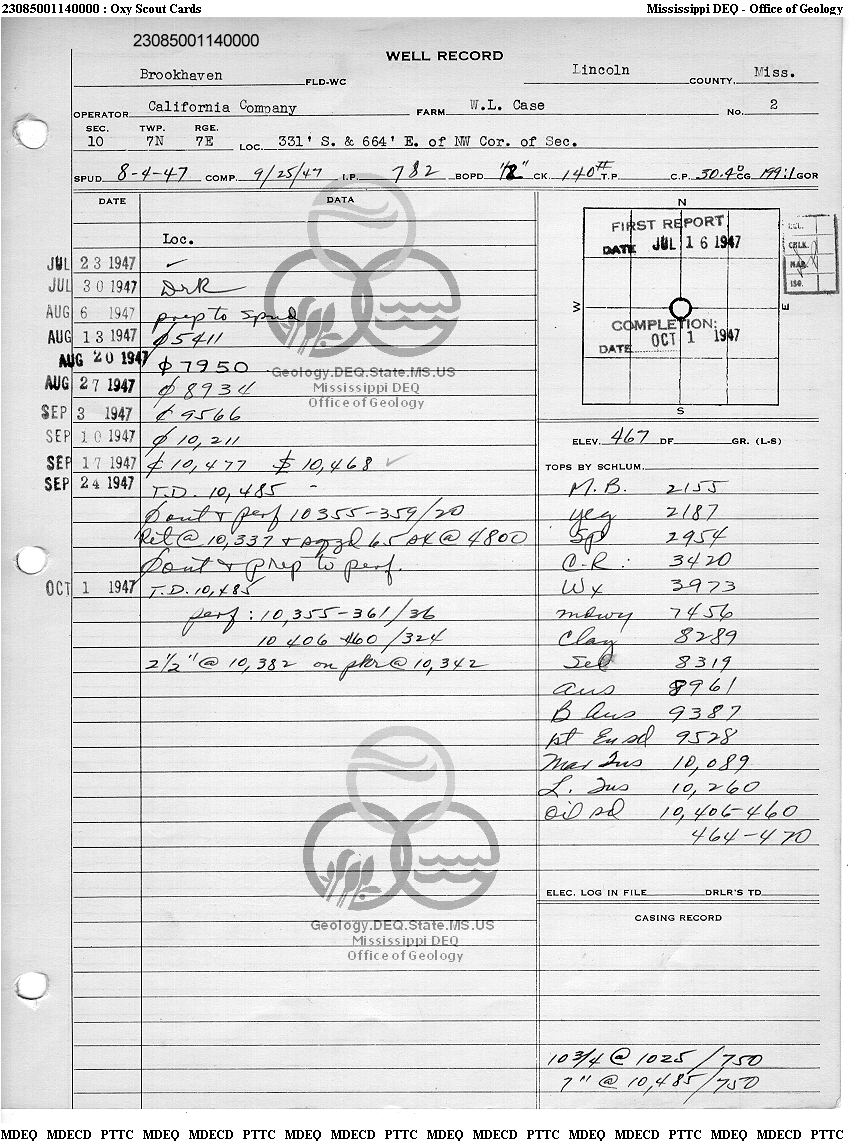 23085001140000 : Oxy Scout Cards Mississippi DEQ - Office of Geology
23085001140000
WELL RECORD
Brookhaven FLD-WC Lincoln COUNTY, Miss.
OPERATOR California Company FARM W.L. Case No. 2
SEC. TWP. RGE.
10 7N 7E LOC. 331' S. & 664' E. of NW Cor. of Sec.
SPUD 8-4-47 COMP. 9/25/47 I.P. 782 BOPD CK 140# T.P. C.P. 30.4° CG 199:1 GOR
DATE DATA
Loc.
JUL 23 1947 ✓
JUL 30 1947 DrR
AUG 6 1947 prep to spud
AUG 13 1947 ₵ 5411
AUG 20 1947 ₵ 7950
AUG 27 1947 ₵ 8934
SEP 3 1947 ₵ 9566
SEP 10 1947 ₵ 10,211
SEP 17 1947 ₵ 10,477 $ 10,468 ✓
SEP 24 1947 T.D. 10,485
out & perf 10355-359/20
Ret @ 10,337 & sqzd 65 sx @ 4800
out & prep to perf.
OCT 1 1947 T.D. 10,485
perf: 10,355-361/36
10 406-460/324
2½" @ 10,382 on pkr @ 10,342
N
FIRST REPORT
DATE JUL 16 1947
W E
COMPLETION:
DATE OCT 1 1947
S
CHLK.
MAP.
ISO.
ELEV. 467 DF GR. (L-S)
TOPS BY SCHLUM.
M.B. 2155
yeg 2187
Sp 2954
C-R: 3420
Wx 3973
mowy 7456
Clay 8289
Sel 8319
aus 8961
B aus 9387
pt En sd 9528
Mar Tus 10,089
L. Tus 10,260
oil sd 10,406-460
464-470
ELEC. LOG IN FILE DRLR'S TD
CASING RECORD
10 3/4 @ 1025/750
7" @ 10,485/750
Geology.DEQ.State.MS.US
Mississippi DEQ
Office of Geology
Geology.DEQ.State.MS.US
Mississippi DEQ
Office of Geology
MDEQ MDECD PTTC MDEQ MDECD PTTC MDEQ MDECD PTTC MDEQ MDECD PTTC MDEQ MDECD PTTC MDEQ MDECD PTTC